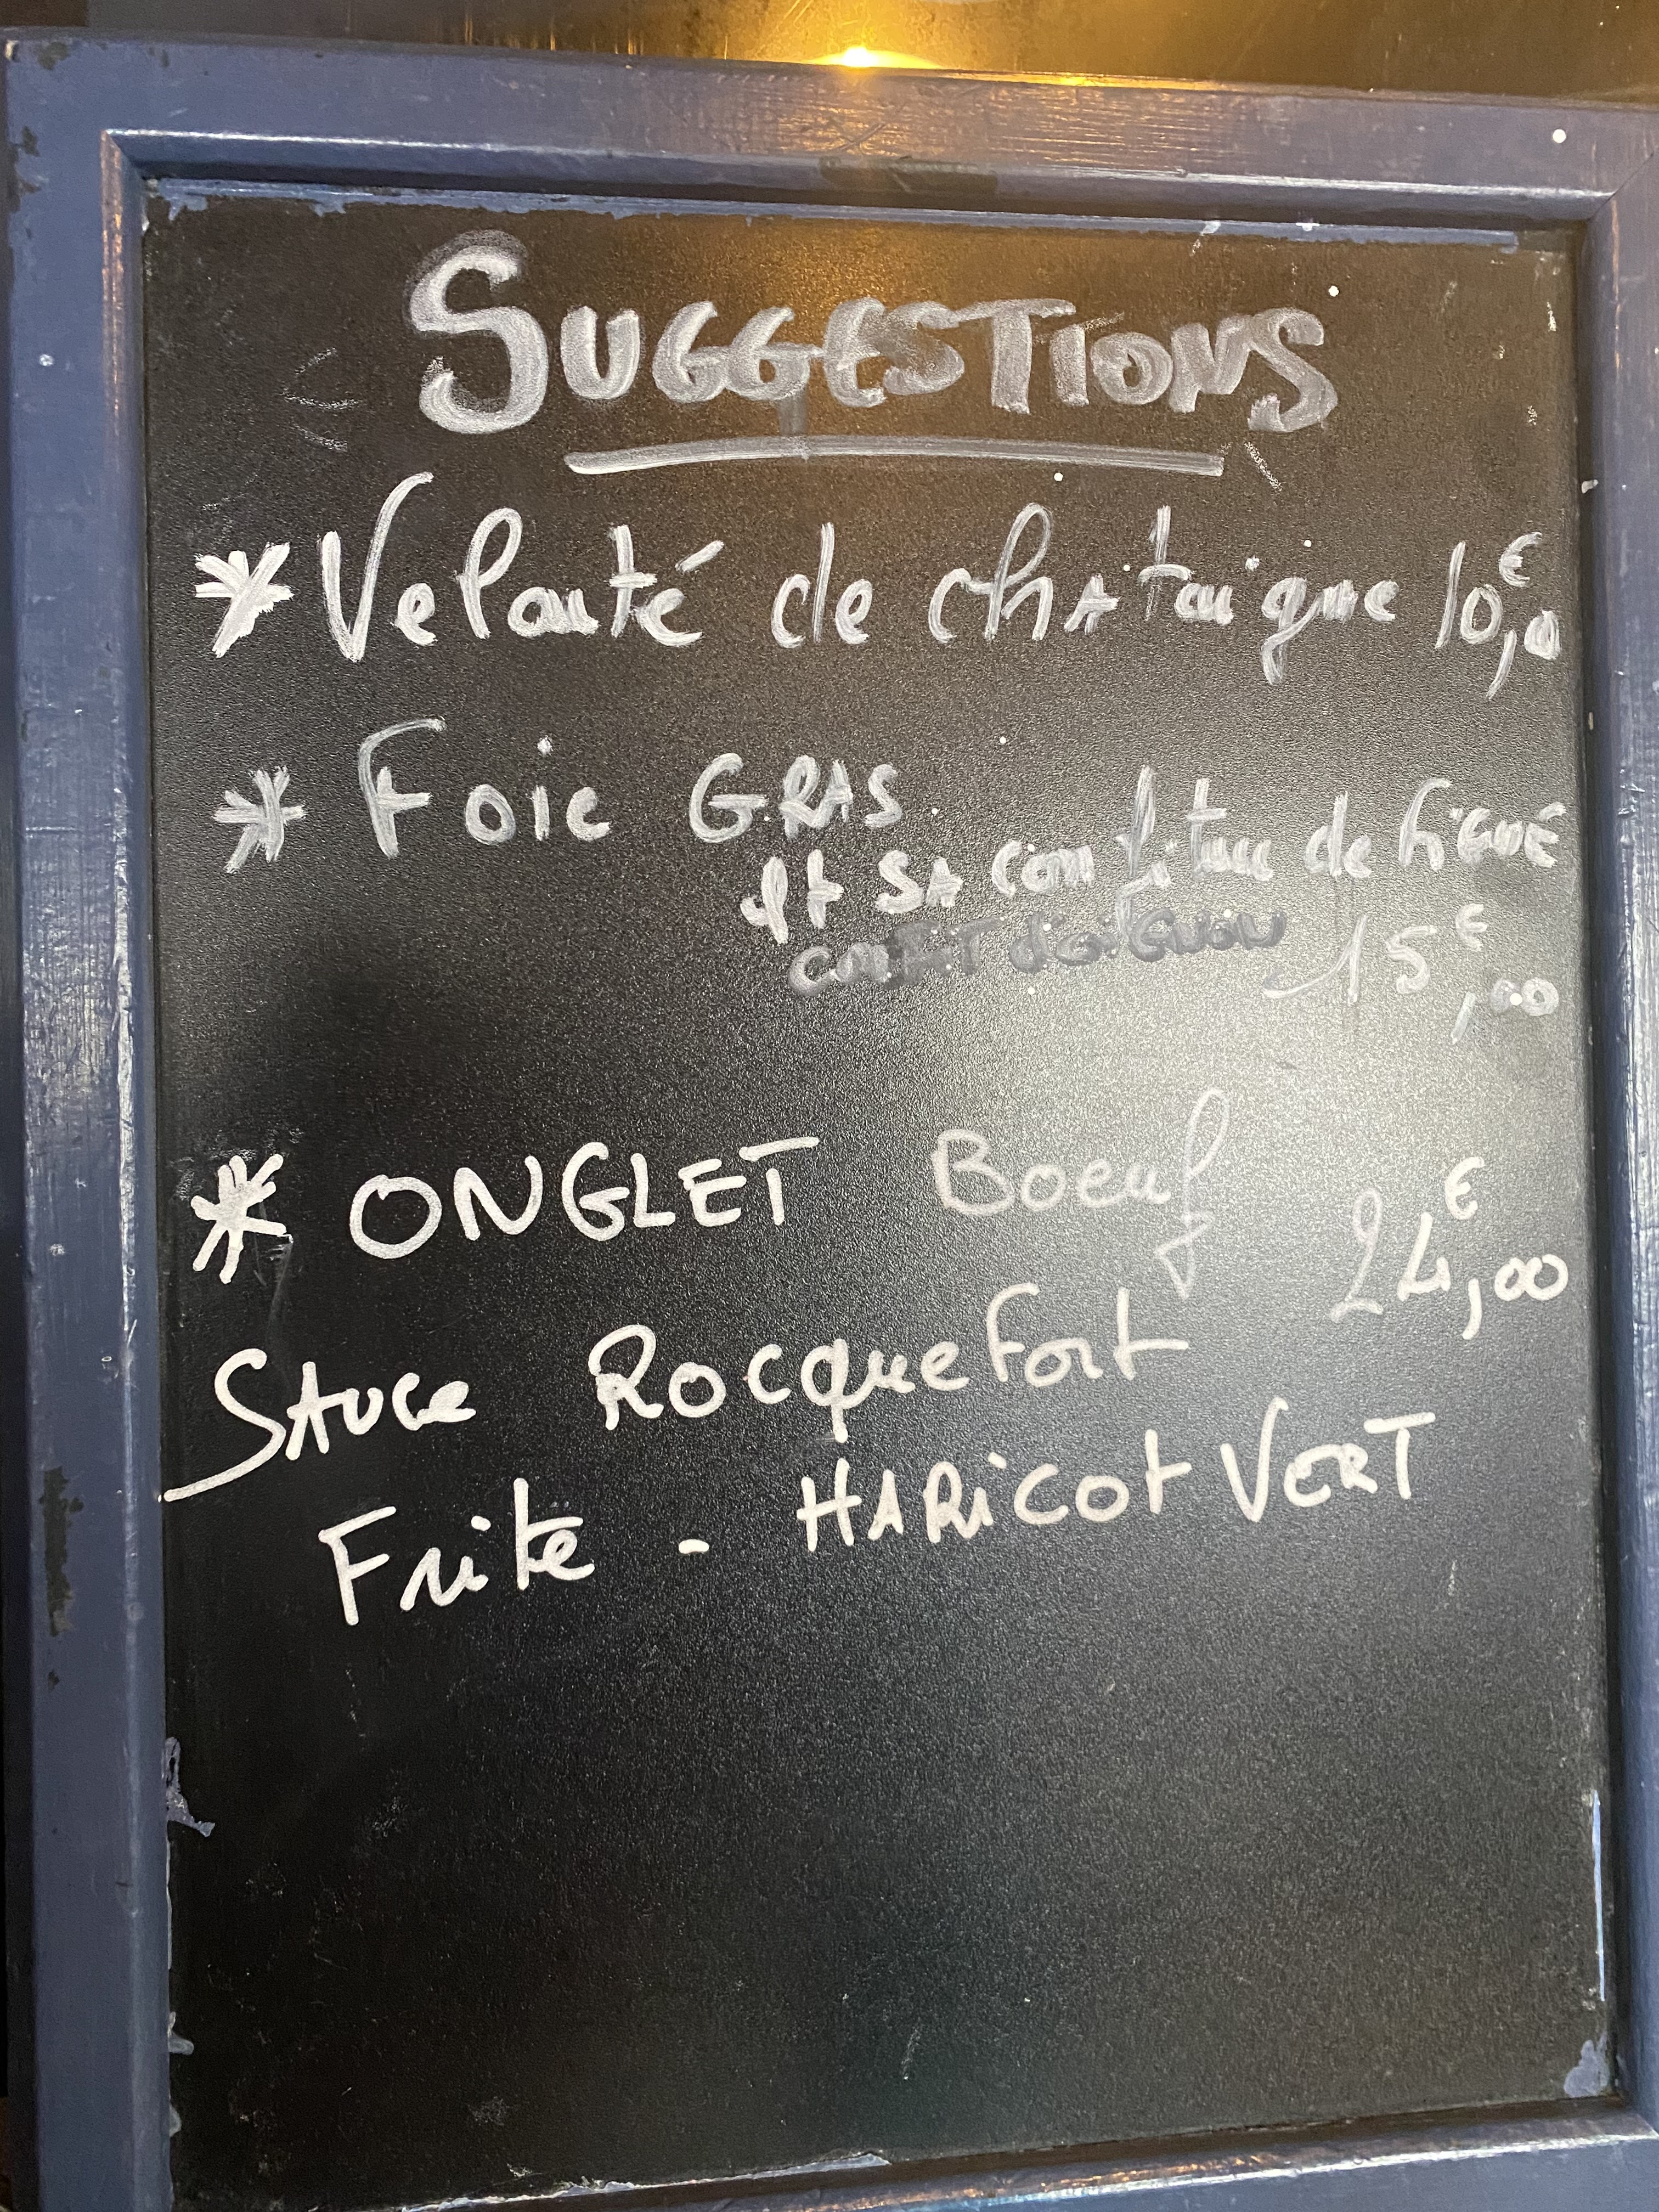 SUGGESTIONS
* Velouté de chAtaigne 10,0€
* Foie GRAS
et SA confiture de FiGUE
conFIT d'oiGnon 15€,00
* ONGLET Boeuf
24€,00
SAUCe ROcqueFort
Frite - HARiCot VERT